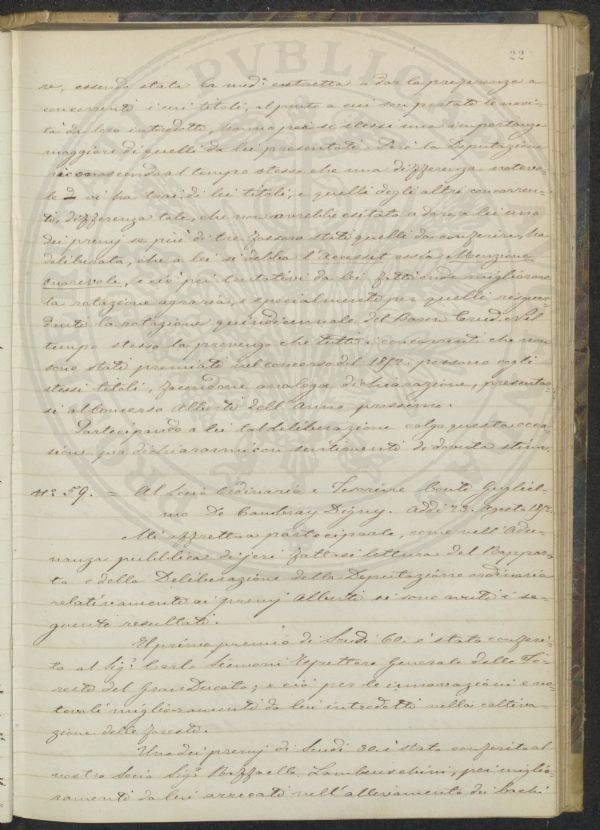 22
re, essendo stata la med.ª costretta a dar la preferenza a
concorrenti i cui titoli, al punto a cui son portate le novi-
tà da loro introdotte, hanno per se stessi una importanza
maggiore di quelli da lei presentati. Però la Deputazione
riconoscendo al tempo stesso che una differenza notevo-
le vi ha tra i di lei titoli, e quelli degli altri concorren-
ti, differenza tale, che non avrebbe esitato a dare a lei uno
dei premj se più di tre fossero stati quelli da conferire, ha
deliberato, che a lei si debba l'Accessit ossia Menzione
onorevole, e ciò pei tentativi da lei fatti onde migliorare
la rotazione agraria, e specialmente per quelli risguar-
danti la rotazione quindicennale del Baron Crud. Nel
tempo stesso la prevengo che tutti i concorrenti che non
sono stati premiati nel concorso del 187 possono cogli
stessi titoli, facendone analoga dichiarazione, presentar-
si al Concorso Alberti dell'Anno prossimo.
Partecipando a lei tal deliberazione colgo questa occa-
sione per dichiararmi con sentimenti di dovuta stima.
N.º 59. = Al Socio Ordinario e Tesoriere Conte Gugliel-
mo De Cambray Digny. Addì 23. Agosto 18
Mi affretto a parteciparle, come nell'Adu-
nanza pubblica di jeri fattasi lettura del Rappor-
to e della Deliberazione della Deputazione ordinaria
relativamente ai premj Alberti si sono avuti i se-
guenti resultati.
Il primo premio di Scudi 60. è stato conferi-
to al Sig.r Carlo Siemoni Ispettore Generale delle Fo-
reste del Gran Ducato; e ciò per le innovazioni e no-
tevoli miglioramenti da lui introdotti nella coltiva-
zione delle foreste.
Uno dei premj di Scudi 30. è stato conferito al
nostro Socio Sig.r Raffaello Lambruschini, pei miglio-
ramenti da lui arrecati nell'allevamento dei bachi